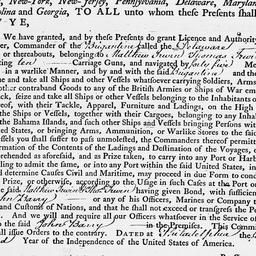 , New-York, New-Jersey, Pennsylvania, Delaware, Marylan
olina and Georgia, TO ALL unto whom these Presents shall
YE,
We have granted, and by these Presents do grant Licence and Authority
er, Commander of the Brigantine called the Delaware
or thereabouts, belonging to Matthew Irwin Thomas Irwin
ting ten Carriage Guns, and navigated by
in a warlike Manner, and by and with the said Brigantine and the
ne and take all Ships and other Vessels whatsoever carrying Soldiers, Arms
other contraband Goods to any of the British Armies or Ships of War em
ck, seize and take all Ships or other Vessels belonging to the Inhabitants o
eof, with their Tackle, Apparel, Furniture and Ladings, on the High
the Ships or Vessels, together with their Cargoes, belonging to any Inhab
he Bahama Islands, and such other Ships and Vessels bringing Persons with
ted States, or bringing Arms, Ammunition, or Warlike Stores to the said
essels you shall suffer to pass unmolested, the Commanders thereof permitt
rmation of the Contents of the Ladings and Destination of the Voyages, or
rehended as aforesaid, and as Prize taken, to carry into any Port or Harb
ling to admit the same, or into any Port within the said United States, in
d determine Causes Civil and Maritime, may proceed in due Form to conde
Prize, or otherwise, according to the Usage in such Cases at the Port or
e said Matthew Irwin & Thos Irwin having given Bond, with sufficient
John Barry or any of his Officers, Marines or Company t
and Customs of Nations, and that he shall not exceed or transgress the Po
. And we will and require all our Officers whatsoever in the Service of
to the said John Barry in the Premises. This Comm
all issue Orders to the contrary. DATED at Philadelphia the
d Year of the Independence of the United States of America.